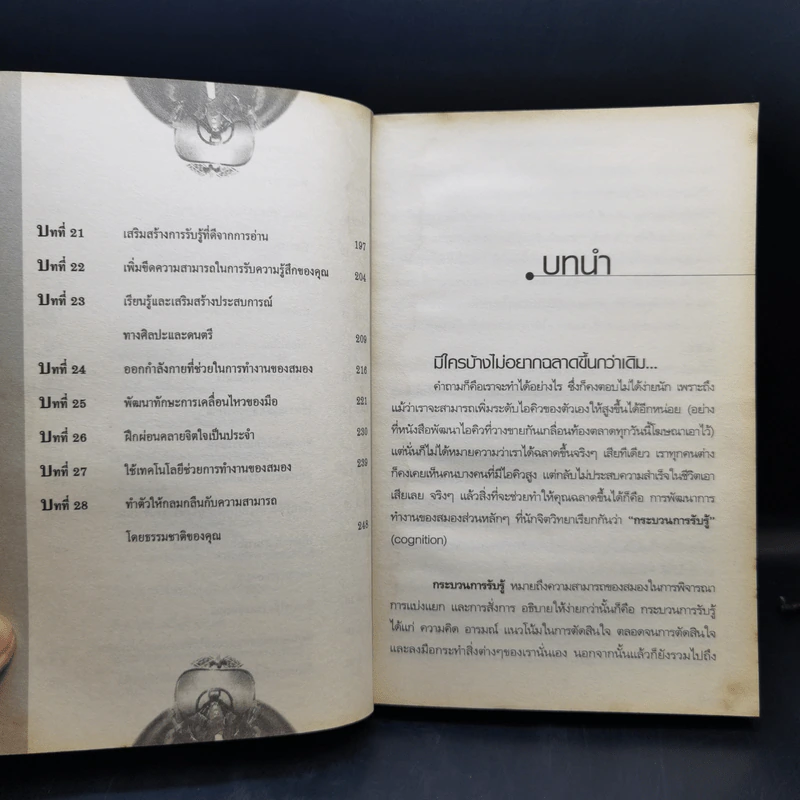 บทที่ 21 เสริมสร้างการรับรู้ที่ดีจากการอ่าน 197
บทที่ 22 เพิ่มขีดความสามารถในการรับความรู้สึกของคุณ 204
บทที่ 23 เรียนรู้และเสริมสร้างประสบการณ์
ทางศิลปะและดนตรี 209
บทที่ 24 ออกกำลังกายที่ช่วยในการทำงานของสมอง 216
บทที่ 25 พัฒนาทักษะการเคลื่อนไหวของมือ 221
บทที่ 26 ฝึกผ่อนคลายจิตใจเป็นประจำ 230
บทที่ 27 ใช้เทคโนโลยีช่วยการทำงานของสมอง 239
บทที่ 28 ทำตัวให้กลมกลืนกับความสามารถ
โดยธรรมชาติของคุณ 248
บทนำ
มีใครบ้างไม่อยากฉลาดขึ้นกว่าเดิม...
คำถามก็คือเราจะทำได้อย่างไร ซึ่งก็คงตอบไม่ได้ง่ายนัก เพราะถึง
แม้ว่าเราจะสามารถเพิ่มระดับไอคิวของตัวเองให้สูงขึ้นได้อีกหน่อย (อย่าง
ที่หนังสือพัฒนาไอคิวที่วางขายกันเกลื่อนท้องตลาดทุกวันนี้โฆษณาเอาไว้)
แต่นั่นก็ไม่ได้หมายความว่าเราได้ฉลาดขึ้นจริงๆ เสียทีเดียว เราทุกคนต่าง
ก็คงเคยเห็นคนบางคนที่มีไอคิวสูง แต่กลับไม่ประสบความสำเร็จในชีวิตเอา
เสียเลย จริงๆ แล้วสิ่งที่จะช่วยทำให้คุณฉลาดขึ้นได้ก็คือ การพัฒนาการ
ทำงานของสมองส่วนหลักๆ ที่นักจิตวิทยาเรียกกันว่า "กระบวนการรับรู้"
(cognition)
กระบวนการรับรู้ หมายถึงความสามารถของสมองในการพิจารณา
การแบ่งแยก และการสั่งการ อธิบายให้ง่ายกว่านั้นก็คือ กระบวนการรับรู้
ได้แก่ ความคิด อารมณ์ แนวโน้มในการตัดสินใจ ตลอดจนการตัดสินใจ
และลงมือกระทำสิ่งต่างๆของเรานั่นเอง นอกจากนั้นแล้วก็ยังรวมไปถึง